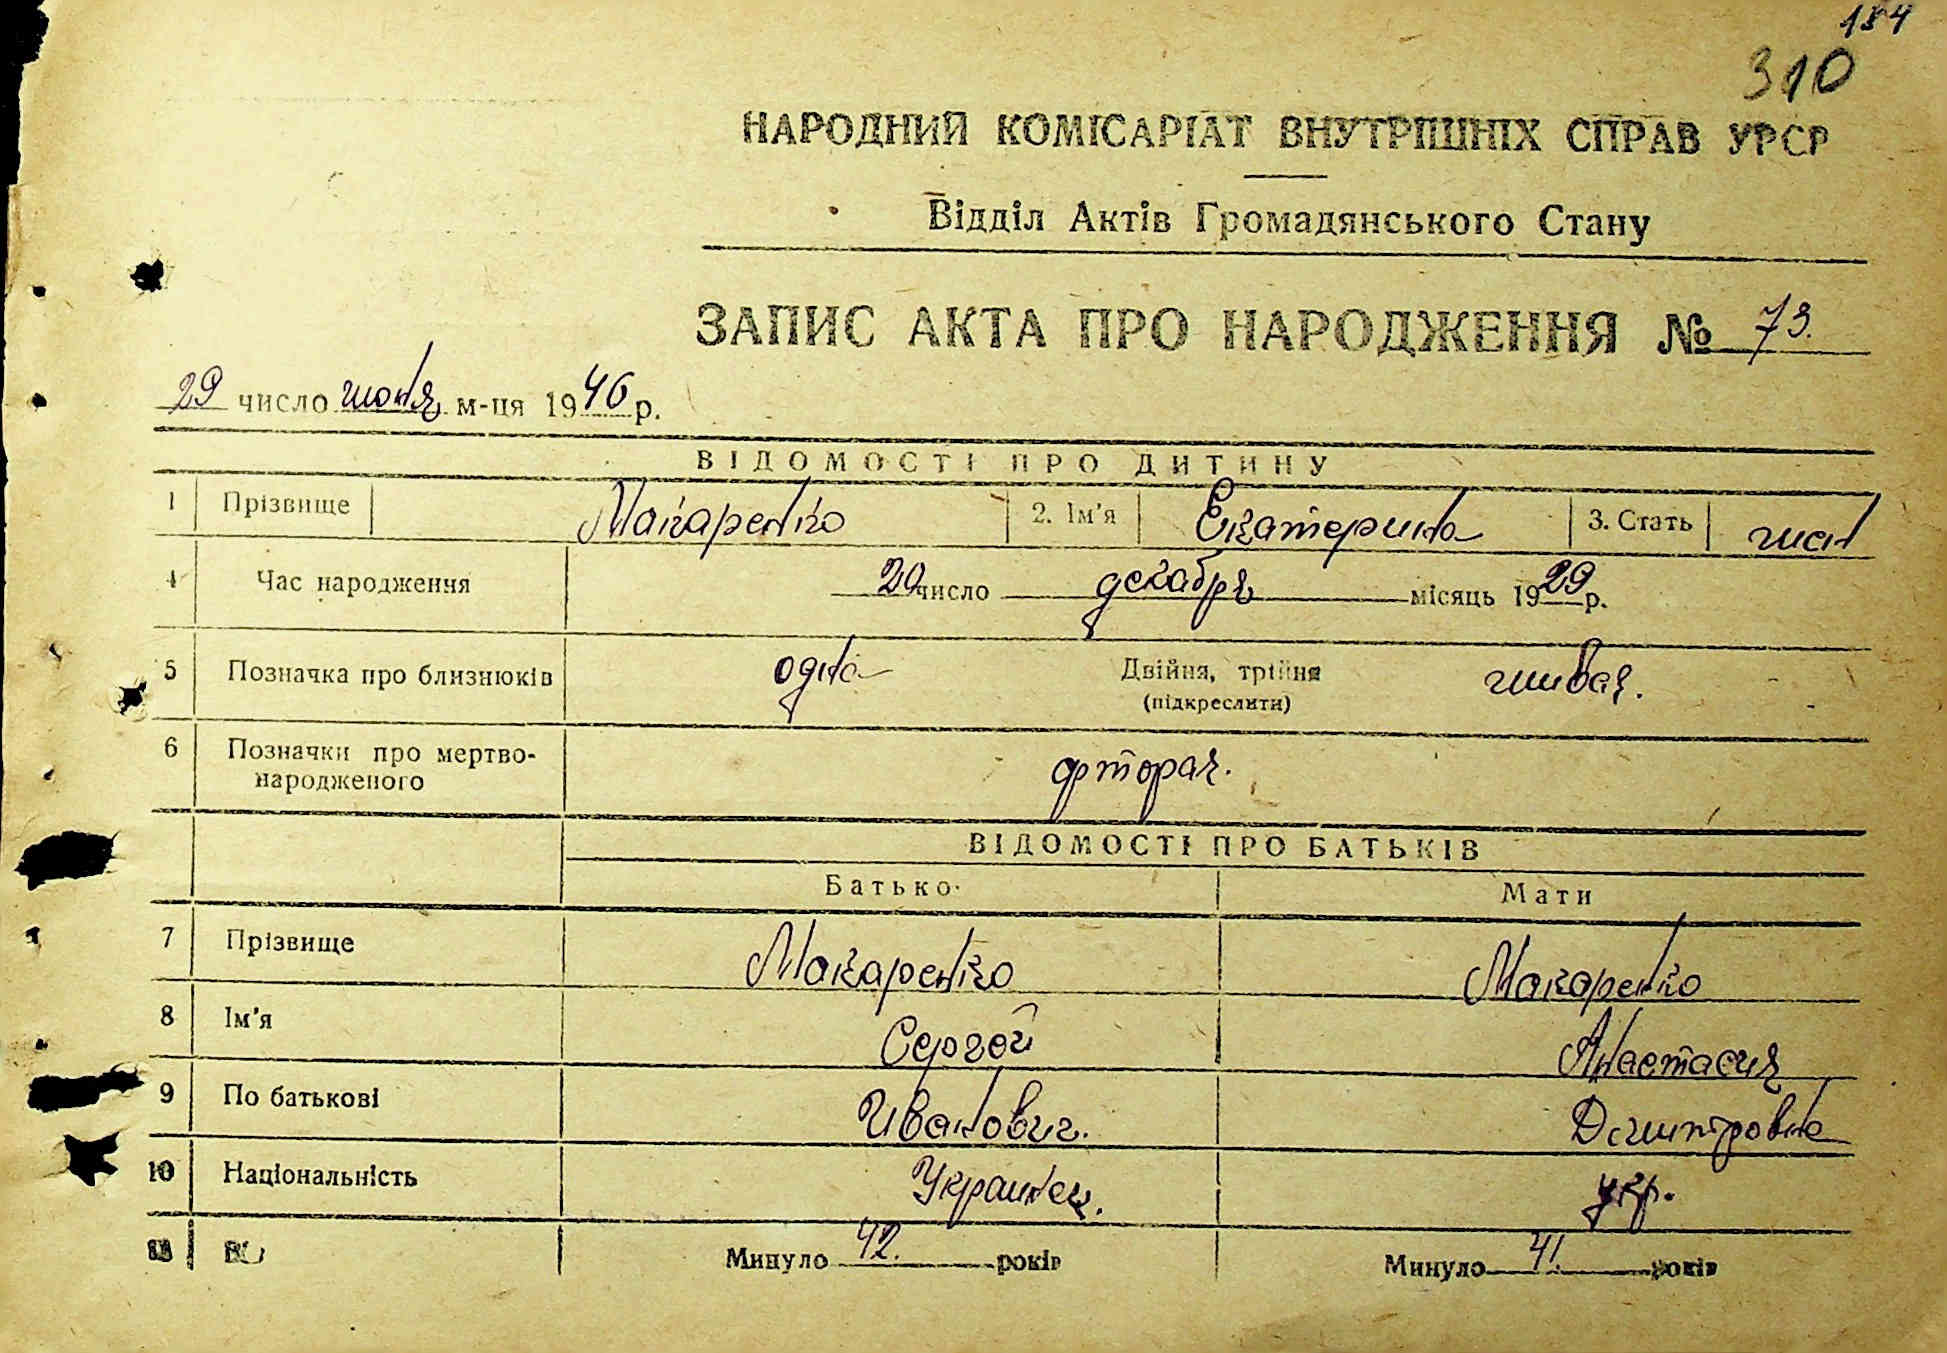 184
310
НАРОДНИЙ КОМІСАРІАТ ВНУТРІШНІХ СПРАВ УРСР
Відділ Актів Громадянського Стану
ЗАПИС АКТА ПРО НАРОДЖЕННЯ № 73.
29 число июня м-ця 1946 р.
ВІДОМОСТІ ПРО ДИТИНУ
1 Прізвище Макаренко 2. Ім'я Екатерина 3. Стать жен
4 Час народження 20 число декабря місяць 1929 р.
5 Позначка про близнюків одна Двійня, трійня живая.
(підкреслити)
6 Позначки про мертво-
народженого вторая.
ВІДОМОСТІ ПРО БАТЬКІВ
Батько Мати
7 Прізвище Макаренко Макаренко
8 Ім'я Сергей Анастасия
9 По батькові Иванович. Дмитровна
10 Національність Украинец. укр.
Минуло 42. років Минуло 41. років